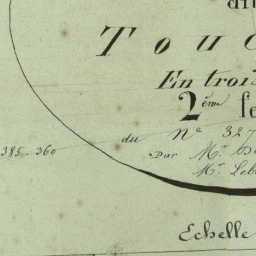 dit
Touc
En trois
2ème fe
du Nº 327
385. 360 Par Mr. De
Mr. Leb
Echelle